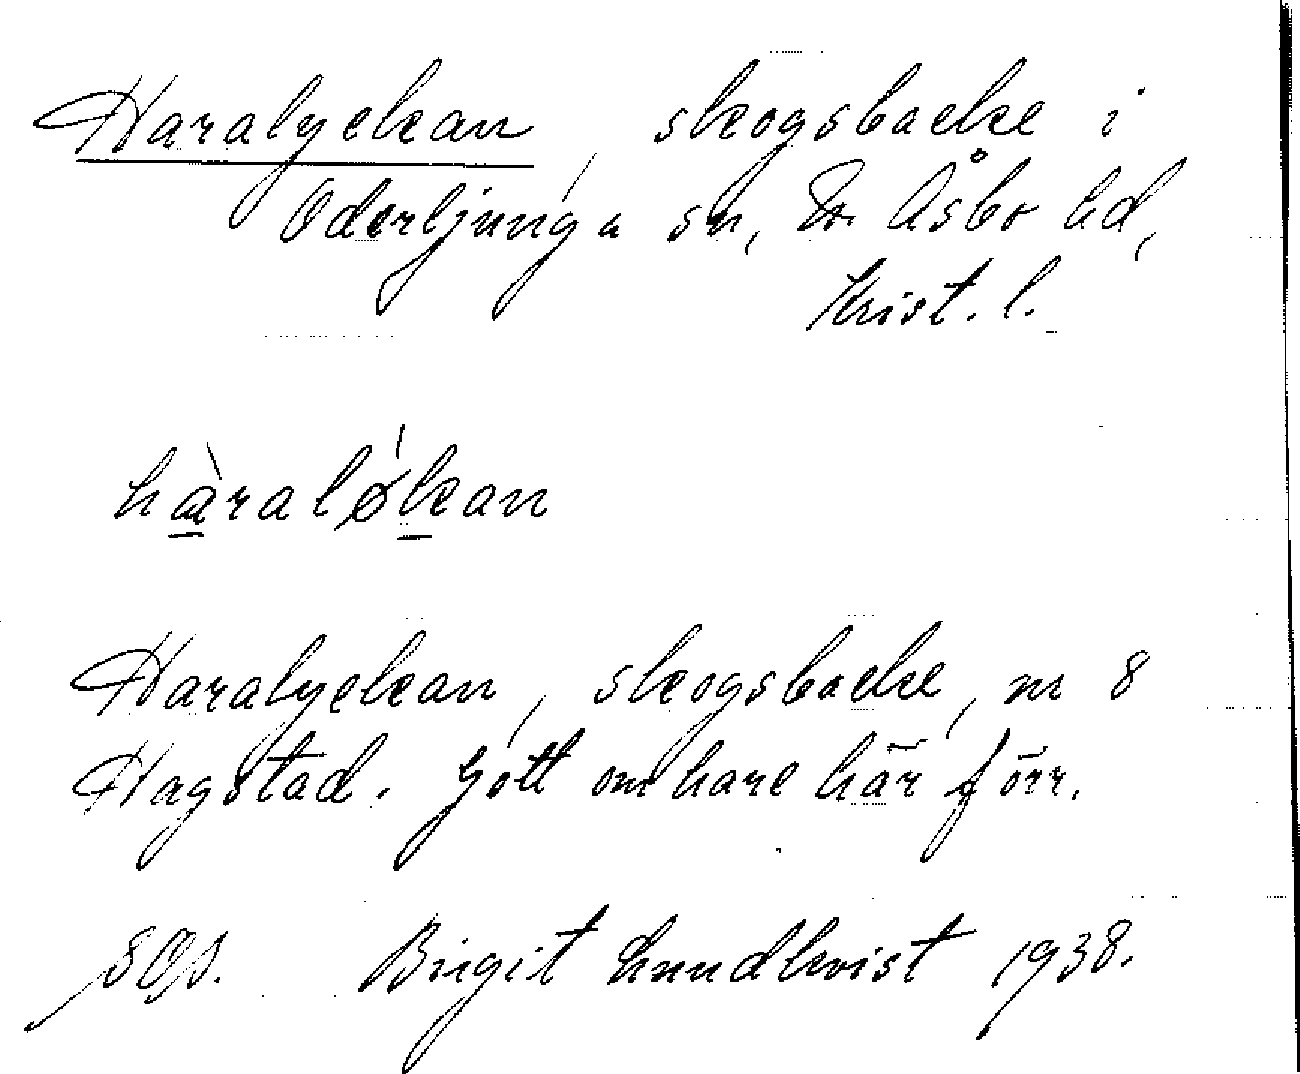 Haralyckan, skogsbacke i
Oderljunga sn, N. Åsbo hd,
Krist. l.
hàralǿkan
Haralyckan, skogsbacke, m 8
Hagstad. Gott om hare här förr.
SOS. Birgit Lundkvist 1938.